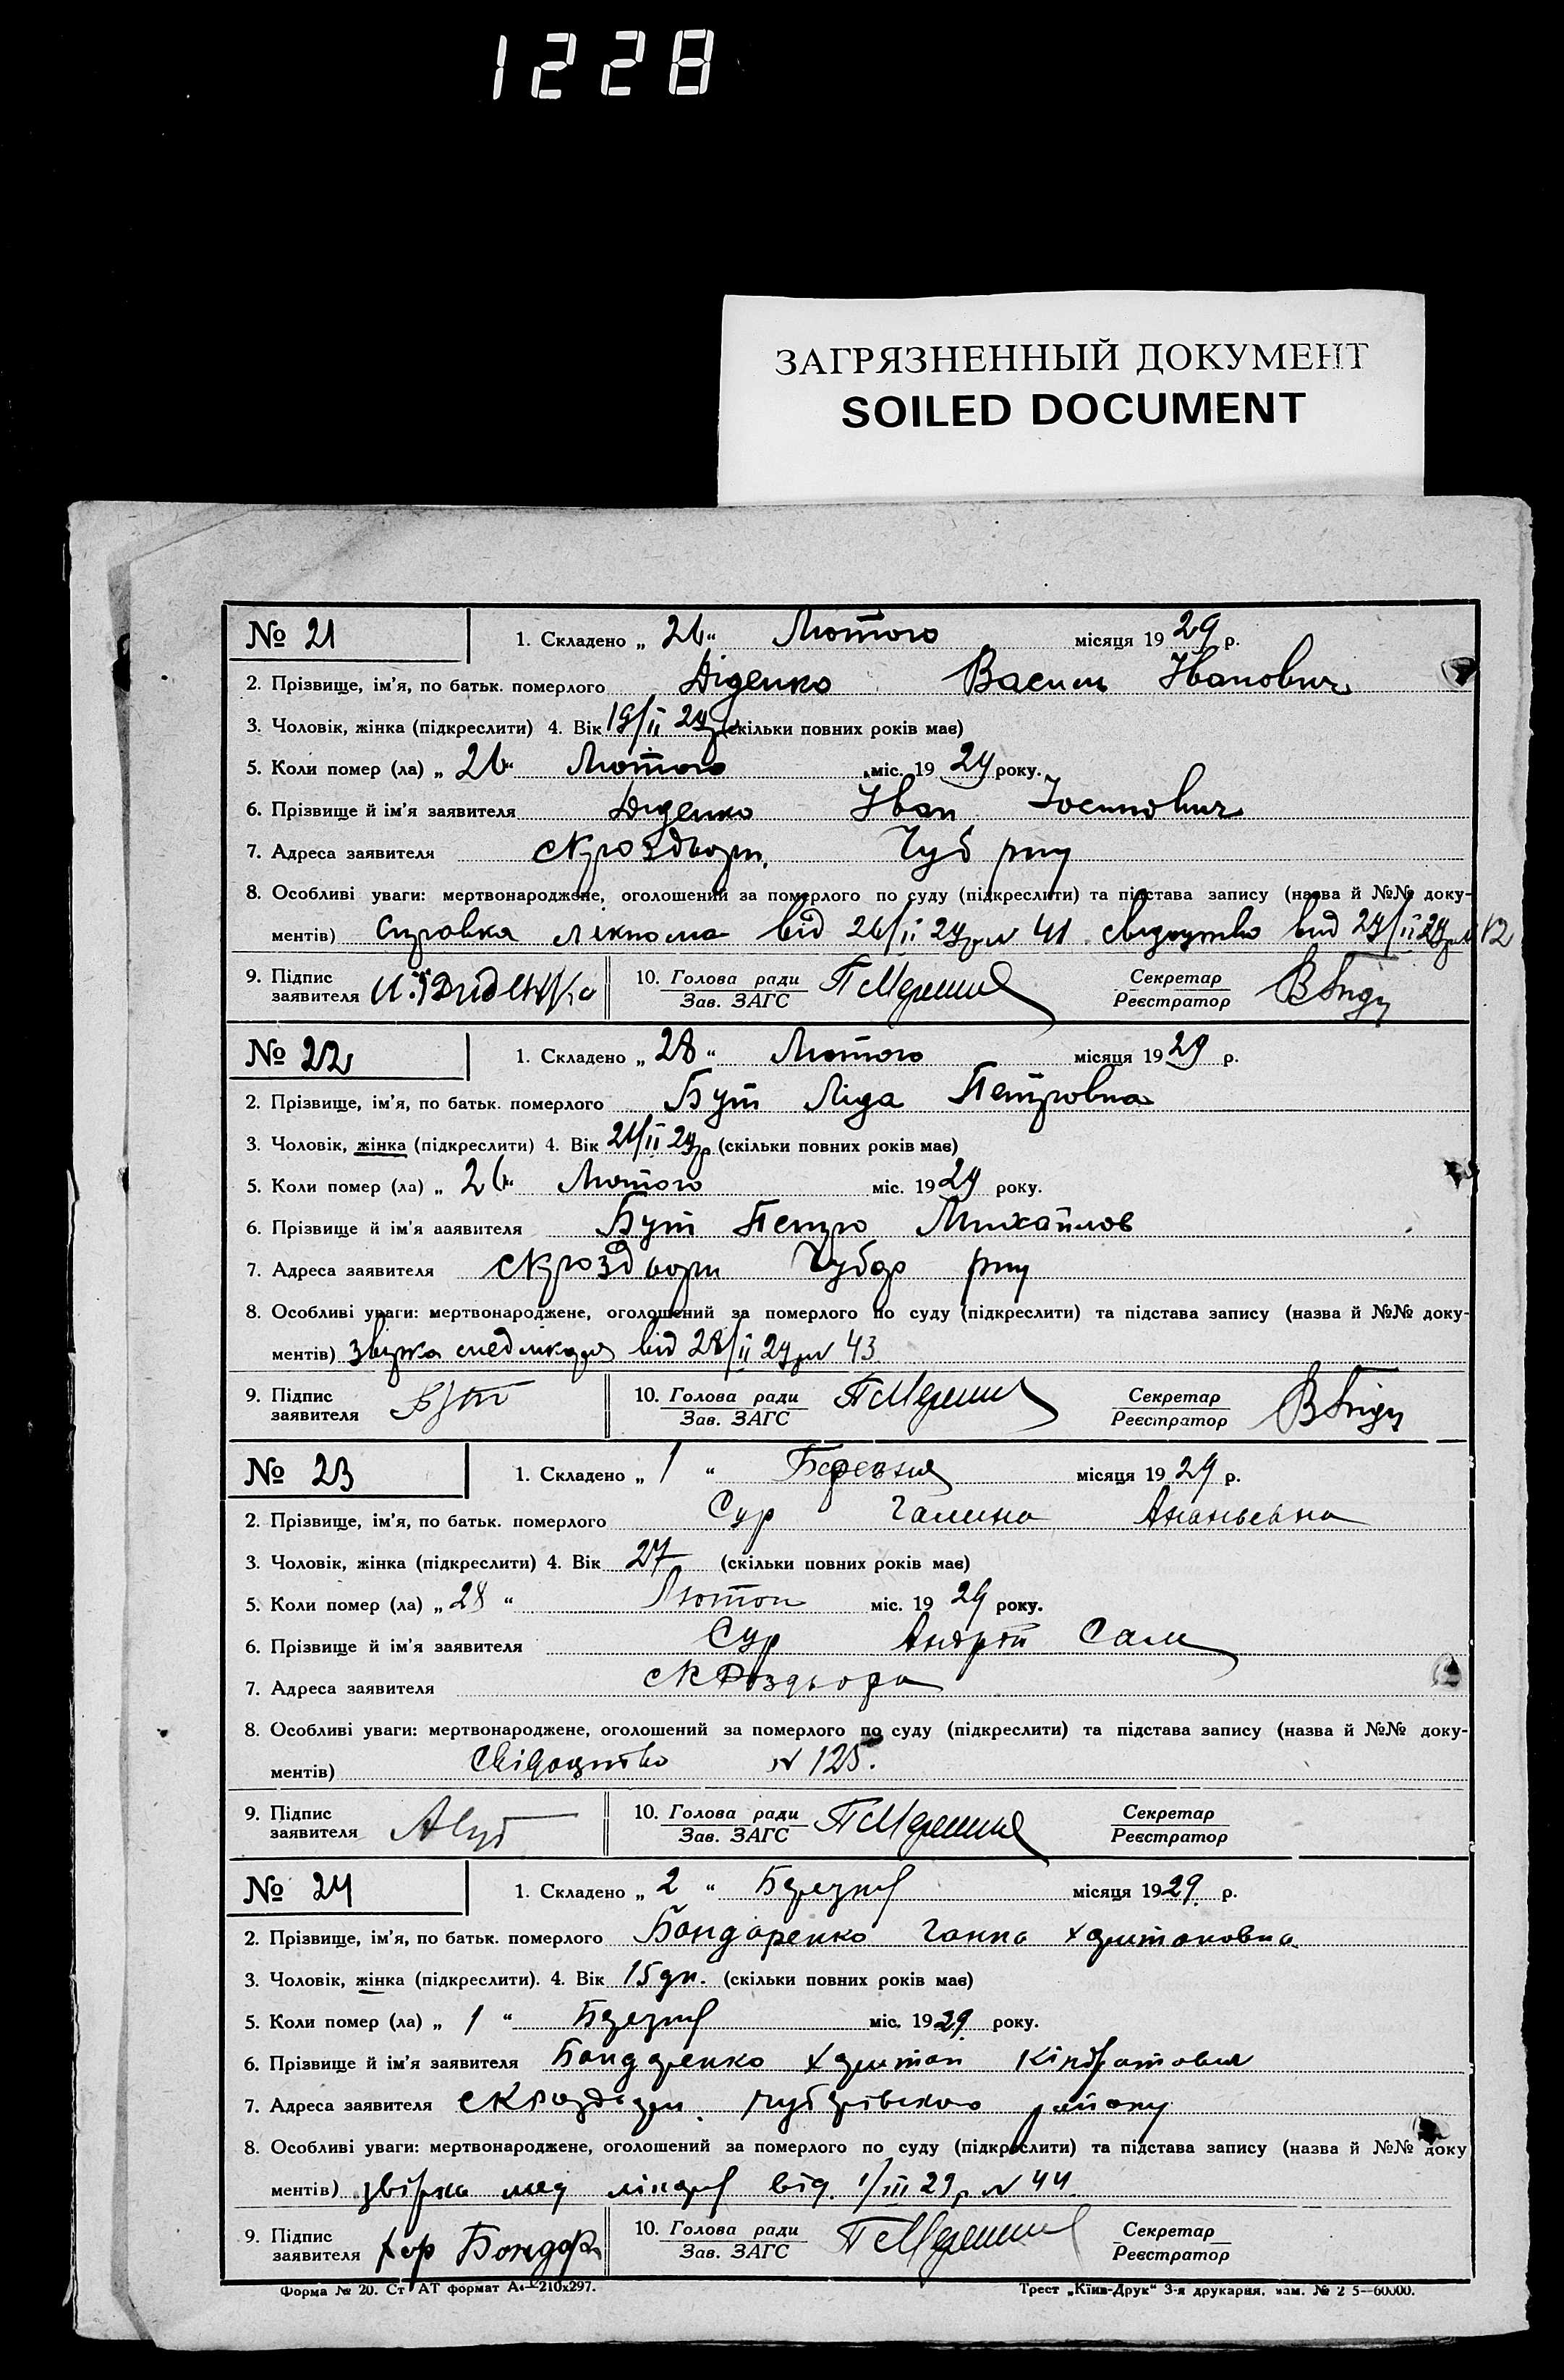 1228
ЗАГРЯЗНЕННЫЙ ДОКУМЕНТ
SOILED DOCUMENT
№ 21 1. Складено „ 26 “ Лютого місяця 1929 р.
2. Прізвище, ім’я, по батьк. померлого Діденко Василь Іванович
3. Чоловік, жінка (підкреслити) 4. Вік 19/II 29р (скільки повних років має)
5. Коли помер (ла) „ 26 “ Лютого міс. 1929 року.
6. Прізвище й ім’я заявителя Діденко Іван Іосипович
7. Адреса заявителя Чуб р-ну
8. Особливі уваги: мертвонароджене, оголошений за померлого по суду (підкреслити) та підстава запису (назва й №№ доку-
ментів) Справка від 26/II 29р N 41 від 27/II 29р N 12
9. Підпис заявителя И. Диденко 10. Голова ради Зав. ЗАГС Секретар Реєстратор
№ 22 1. Складено „ 28 “ Лютого місяця 1929 р.
2. Прізвище, ім’я, по батьк. померлого Бут Ліда Петровна
3. Чоловік, жінка (підкреслити) 4. Вік 21/II 29р (скільки повних років має)
5. Коли помер (ла) „ 26 “ Лютого міс. 1929 року.
6. Прізвище й ім’я заявителя Бут Петро Михайлов
7. Адреса заявителя Чубар р-ну
8. Особливі уваги: мертвонароджене, оголошений за померлого по суду (підкреслити) та підстава запису (назва й №№ доку-
ментів) звірка медлікаря від 28/II 29р N 43
9. Підпис заявителя Бут 10. Голова ради Зав. ЗАГС Секретар Реєстратор
№ 23 1. Складено „ 1 “ Березня місяця 1929 р.
2. Прізвище, ім’я, по батьк. померлого Сур Галина Ананьевна
3. Чоловік, жінка (підкреслити) 4. Вік 27 (скільки повних років має)
5. Коли помер (ла) „ 28 “ міс. 1929 року.
6. Прізвище й ім’я заявителя Сур Андрій Сам
7. Адреса заявителя
8. Особливі уваги: мертвонароджене, оголошений за померлого по суду (підкреслити) та підстава запису (назва й №№ доку-
ментів) Свідоцтво N 125.
9. Підпис заявителя 10. Голова ради Зав. ЗАГС Секретар Реєстратор
№ 24 1. Складено „ 2 “ Березня місяця 1929. р.
2. Прізвище, ім’я, по батьк. померлого Бондаренко Ганна Харитоновна
3. Чоловік, жінка (підкреслити). 4. Вік 15 дн. (скільки повних років має)
5. Коли помер (ла) „ 1 “ Березня міс. 1929. року.
6. Прізвище й ім’я заявителя Бондаренко Харитон Кіндратович
7. Адреса заявителя Чубарівського району
8. Особливі уваги: мертвонароджене, оголошений за померлого по суду (підкреслити) та підстава запису (назва й №№ доку
ментів) звірка мед лікаря від. 1/III 29р N 44.
9. Підпис заявителя Хар Бондар 10. Голова ради Зав. ЗАГС Секретар Реєстратор
Форма № 20. Ст АТ формат А4—210х297. Трест „Київ-Друк“ 3-я друкарня. зам. № 2 5—60000.